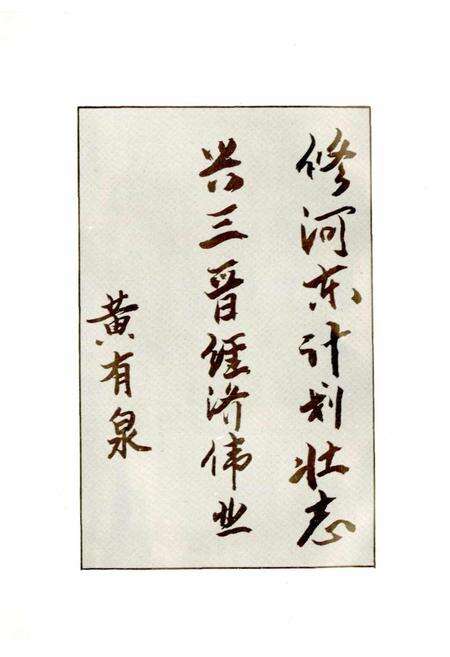 修河东计划壮志
兴三晋经济伟业
黄有泉